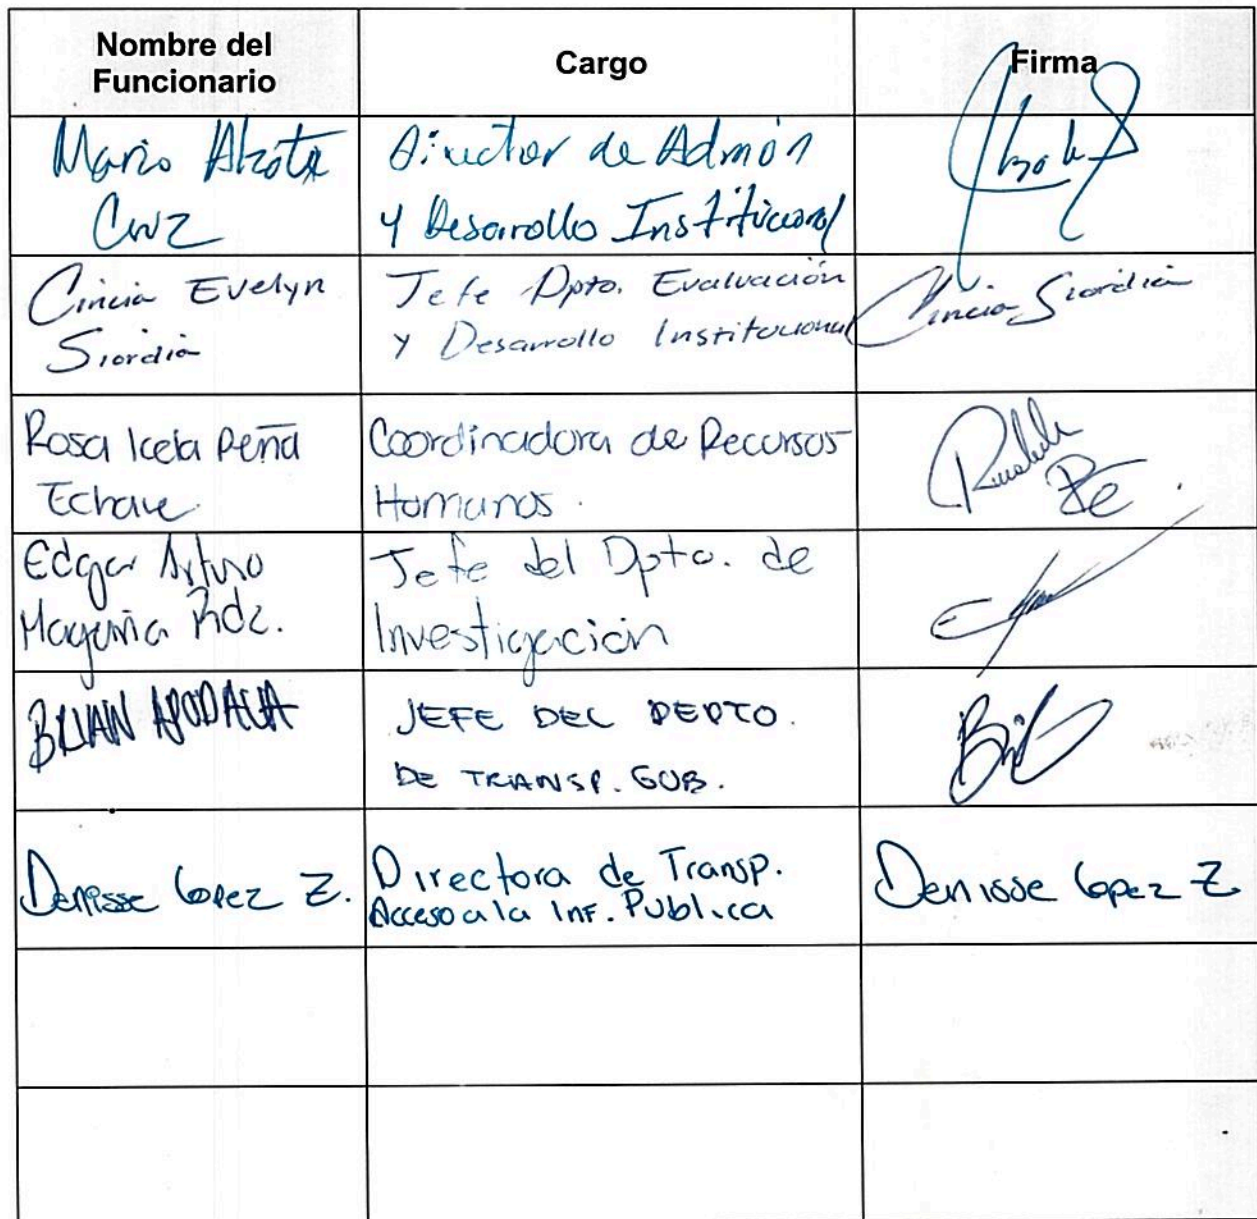 Nombre del
Funcionario
Cargo
Firma
Mario
Cruz
Director de Admón
y Desarrollo Institucional
Cincia Evelyn
Siordia
Jefe Dpto. Evaluación
y Desarrollo Institucional
Cincia Siordia
Rosa Icela Peña
Echave
Coordinadora de Recursos
Humanos.
Edgar Arturo
Magaña Rdz.
Jefe del Dpto. de
Investigación
BRIAN APODACA
JEFE DEL DEPTO.
DE TRANSP. GUB.
Denisse Lopez Z.
Directora de Transp.
Acceso a la Inf. Publica
Denisse Lopez Z